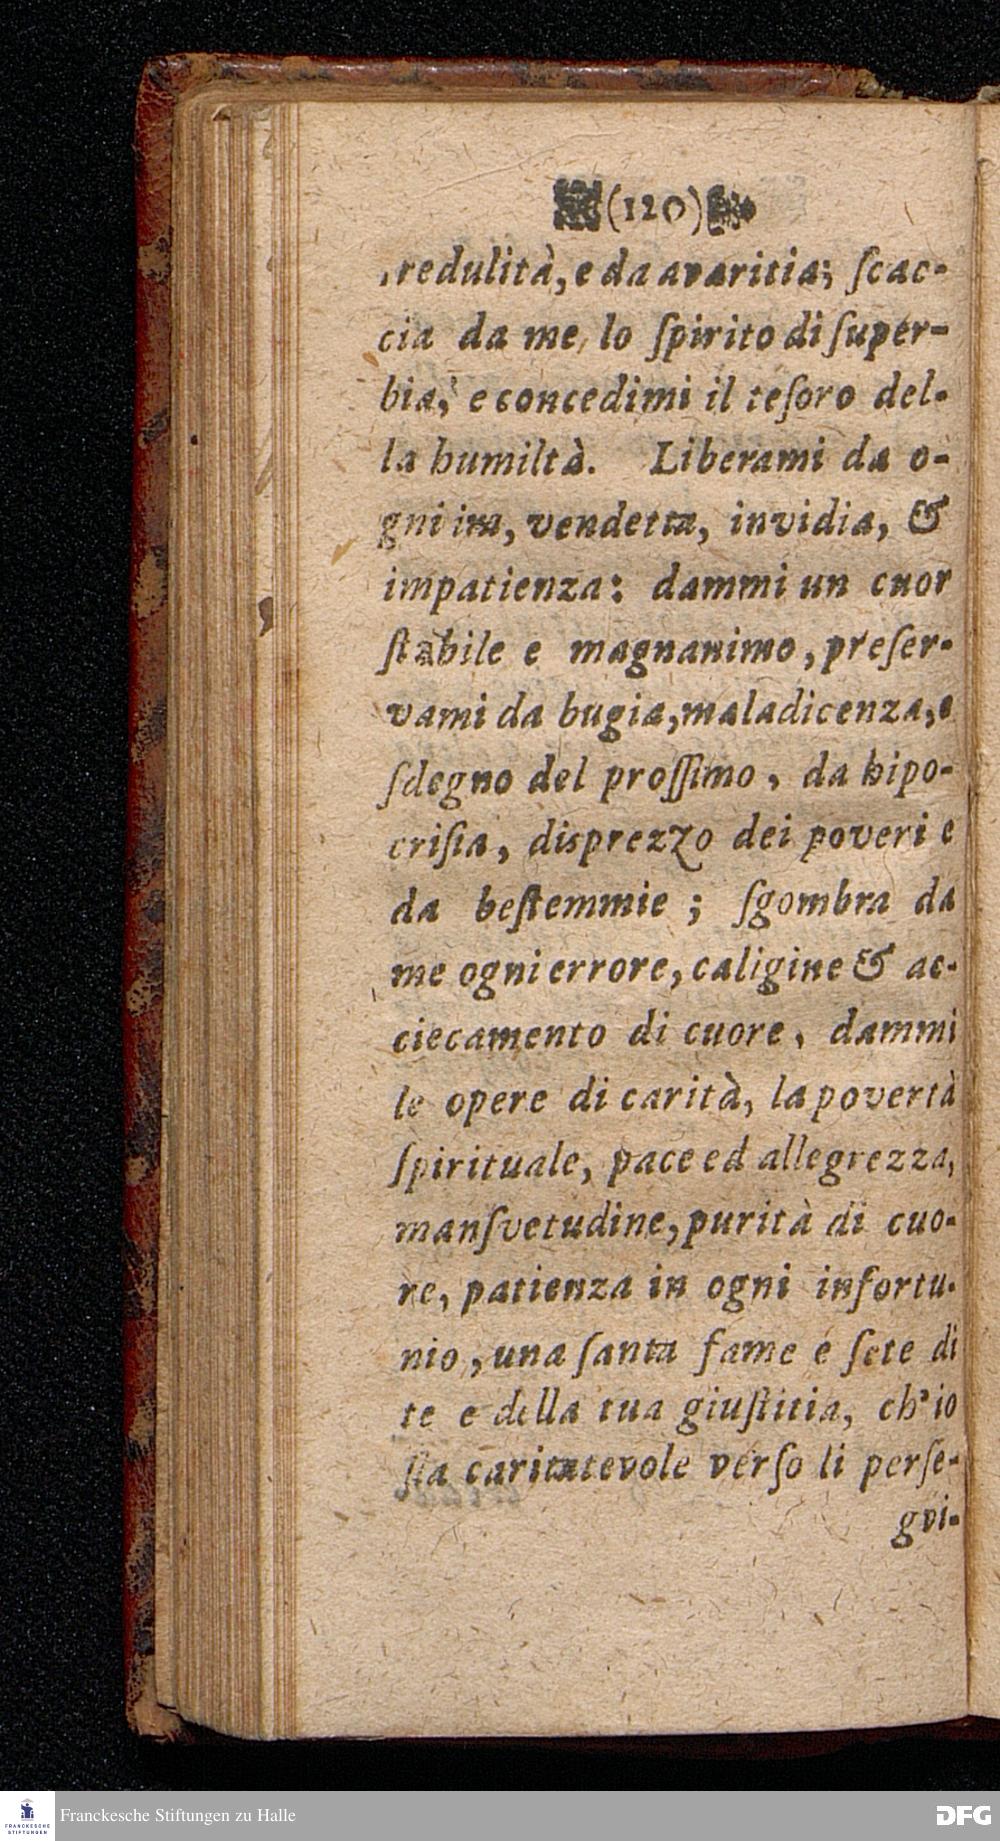 (120)
redulità, e da avaritia; ſcac-
cia da me, lo ſpirito di ſuper-
bia, e concedimi il teſoro del-
la humiltà. Liberami da o-
gni ira, vendetta, invidia, &
impatienza: dammi un cuor
ſtabile e magnanimo, preſer-
vami da bugia, maladicenza, e
ſdegno del proſſimo, da hipo-
criſia, disprezzo dei poveri e
da beſtemmie; ſgombra da
me ogni errore, caligine & ac-
ciecamento di cuore, dammi
le opere di carità, la povertà
ſpirituale, pace ed allegrezza,
manſvetudine, purità di cuo-
re, patienza in ogni infortu-
nio, una ſanta fame e ſete di
te e della tua giuſtitia, ch'io
ſia caritatevole verſo li perſe-
gvi-
Franckesche Stiftungen zu Halle
FRANCKESCHE
STIFTUNGEN
DFG